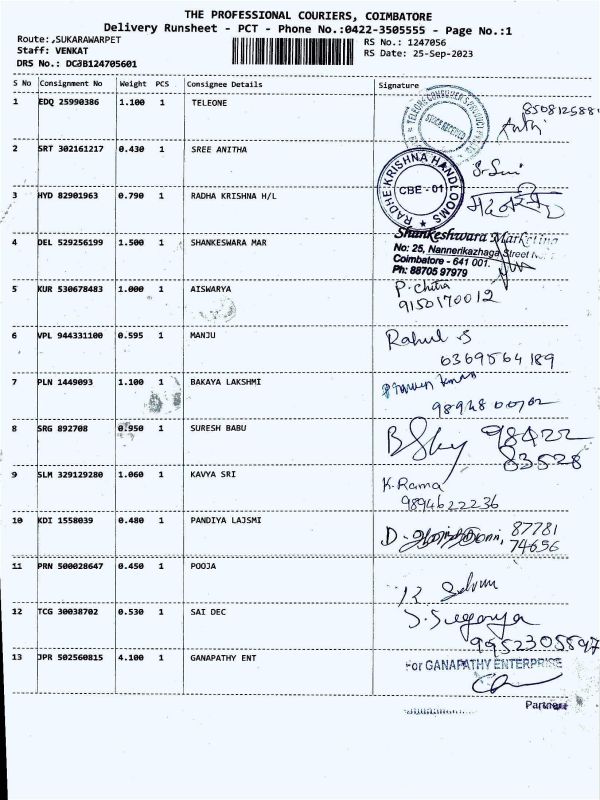 THE PROFESSIONAL COURIERS, COIMBATORE
Delivery Runsheet - PCT - Phone No.:0422-3505555 - Page No.:1
Route:,SUKARAWARPET
RS No.: 1247056
Staff: VENKAT
RS Date: 25-Sep-2023
DRS No.: DCJB124705601
S No Consignment No Weight PCS Consignee Details Signature
1 EDQ 25990386 1.100 1 TELEONE
TELEONE CONSUMER PRODUCT
STOCK RECEIVED
2 SRT 302161217 0.430 1 SREE ANITHA
3 HYD 82901963 0.790 1 RADHA KRISHNA H/L
RADHE KRISHNA HANDLOOMS
CBE - 01
4 DEL 529256199 1.500 1 SHANKESWARA MAR
Shankeshwara Marketing
No: 25, Nannerikazhaga Street
Coimbatore - 641 001.
Ph: 88705 97979
5 KUR 530678483 1.000 1 AISWARYA
P. chitra
9150170012
6 VPL 944331100 0.595 1 MANJU
Rahul S
6369564189
7 PLN 1449093 1.100 1 BAKAYA LAKSHMI
8 SRG 892708 0.950 1 SURESH BABU
98422
83528
9 SLM 329129280 1.060 1 KAVYA SRI
K. Rama
9894622236
10 KDI 1558039 0.480 1 PANDIYA LAJSMI
87781
74656
11 PRN 500028647 0.450 1 POOJA
12 TCG 30038702 0.530 1 SAI DEC
13 JPR 502560815 4.100 1 GANAPATHY ENT
For GANAPATHY ENTERPRISE
Partner